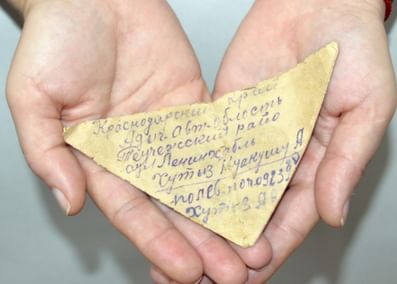 Краснодарский край
Адыг Авт. область
Теучежский райо
аул Ленинхабль
Хутыз Куакушу А
полев. поч 0923
Хутыз Ав